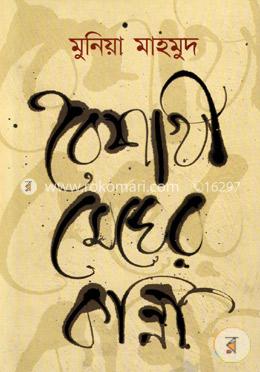 মুনিয়া মাহমুদ
বৈশাখী
মেঘের
কান্না
rokomari.com
16297